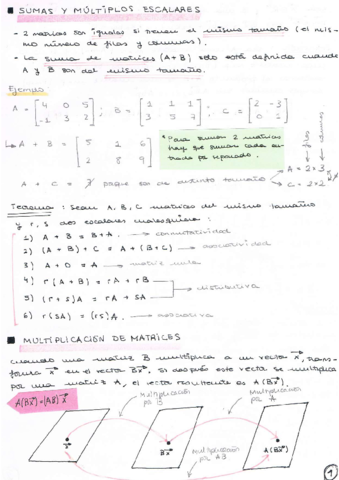 ■ SUMAS Y MÚLTIPLOS ESCALARES
- 2 matrices son iguales si tienen el mismo tamaño (el mismo número de filas y columnas).
- La suma de matrices (A+B) sólo está definida cuando A y B son del mismo tamaño.
Ejemplo
A = [4 0 5; -1 3 2] ; B = [1 1 1; 3 5 7] ; C = [2 -3; 0 1]
↳ A + B = [5 1 6; 2 8 9]
* Para sumar 2 matrices hay que sumar cada entrada por separado.
A + C = ∄ porque son de distinto tamaño
A = 2×3
C = 2×2
filas
columnas
Teorema: Sean A, B, C matrices del mismo tamaño
y r, s dos escalares cualesquiera:
1) A + B = B + A → conmutatividad
2) (A + B) + C = A + (B + C) → asociatividad
3) A + 0 = A → matriz nula
4) r(A + B) = rA + rB
5) (r + s)A = rA + sA
→ distributiva
6) r(sA) = (rs)A → asociativa
■ MULTIPLICACIÓN DE MATRICES
Cuando una matriz B multiplica a un vector x⃗, transforma x⃗ en el vector Bx⃗. Si después este vector se multiplica
por una matriz A, el vector resultante es A(Bx⃗).
A(Bx⃗) = (AB)x⃗
Multiplicación por B
Multiplicación por A
x⃗
Bx⃗
A(Bx⃗)
Multiplicación por AB
1